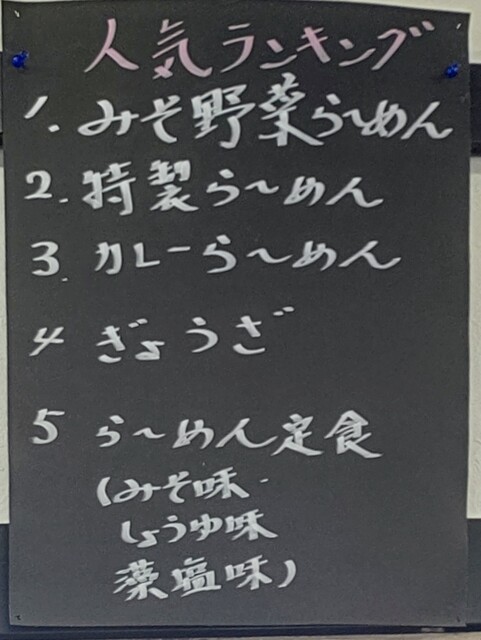 人気ランキング
1. みそ野菜ら〜めん
2. 特製ら〜めん
3. カレーら〜めん
4 ぎょうざ
5 ら〜めん定食
(みそ味・
しょうゆ味
藻塩味)